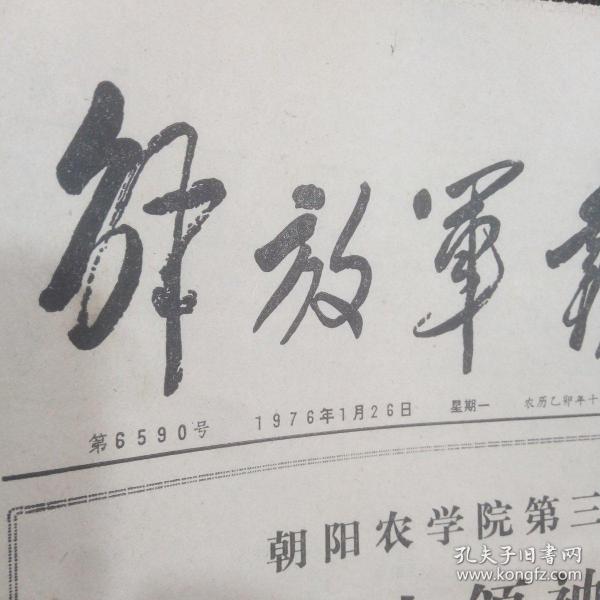 解放軍
第6590号 1976年1月26日 星期一 农历乙卯年十
朝阳农学院第三
孔夫子旧书网
www.kongfz.com